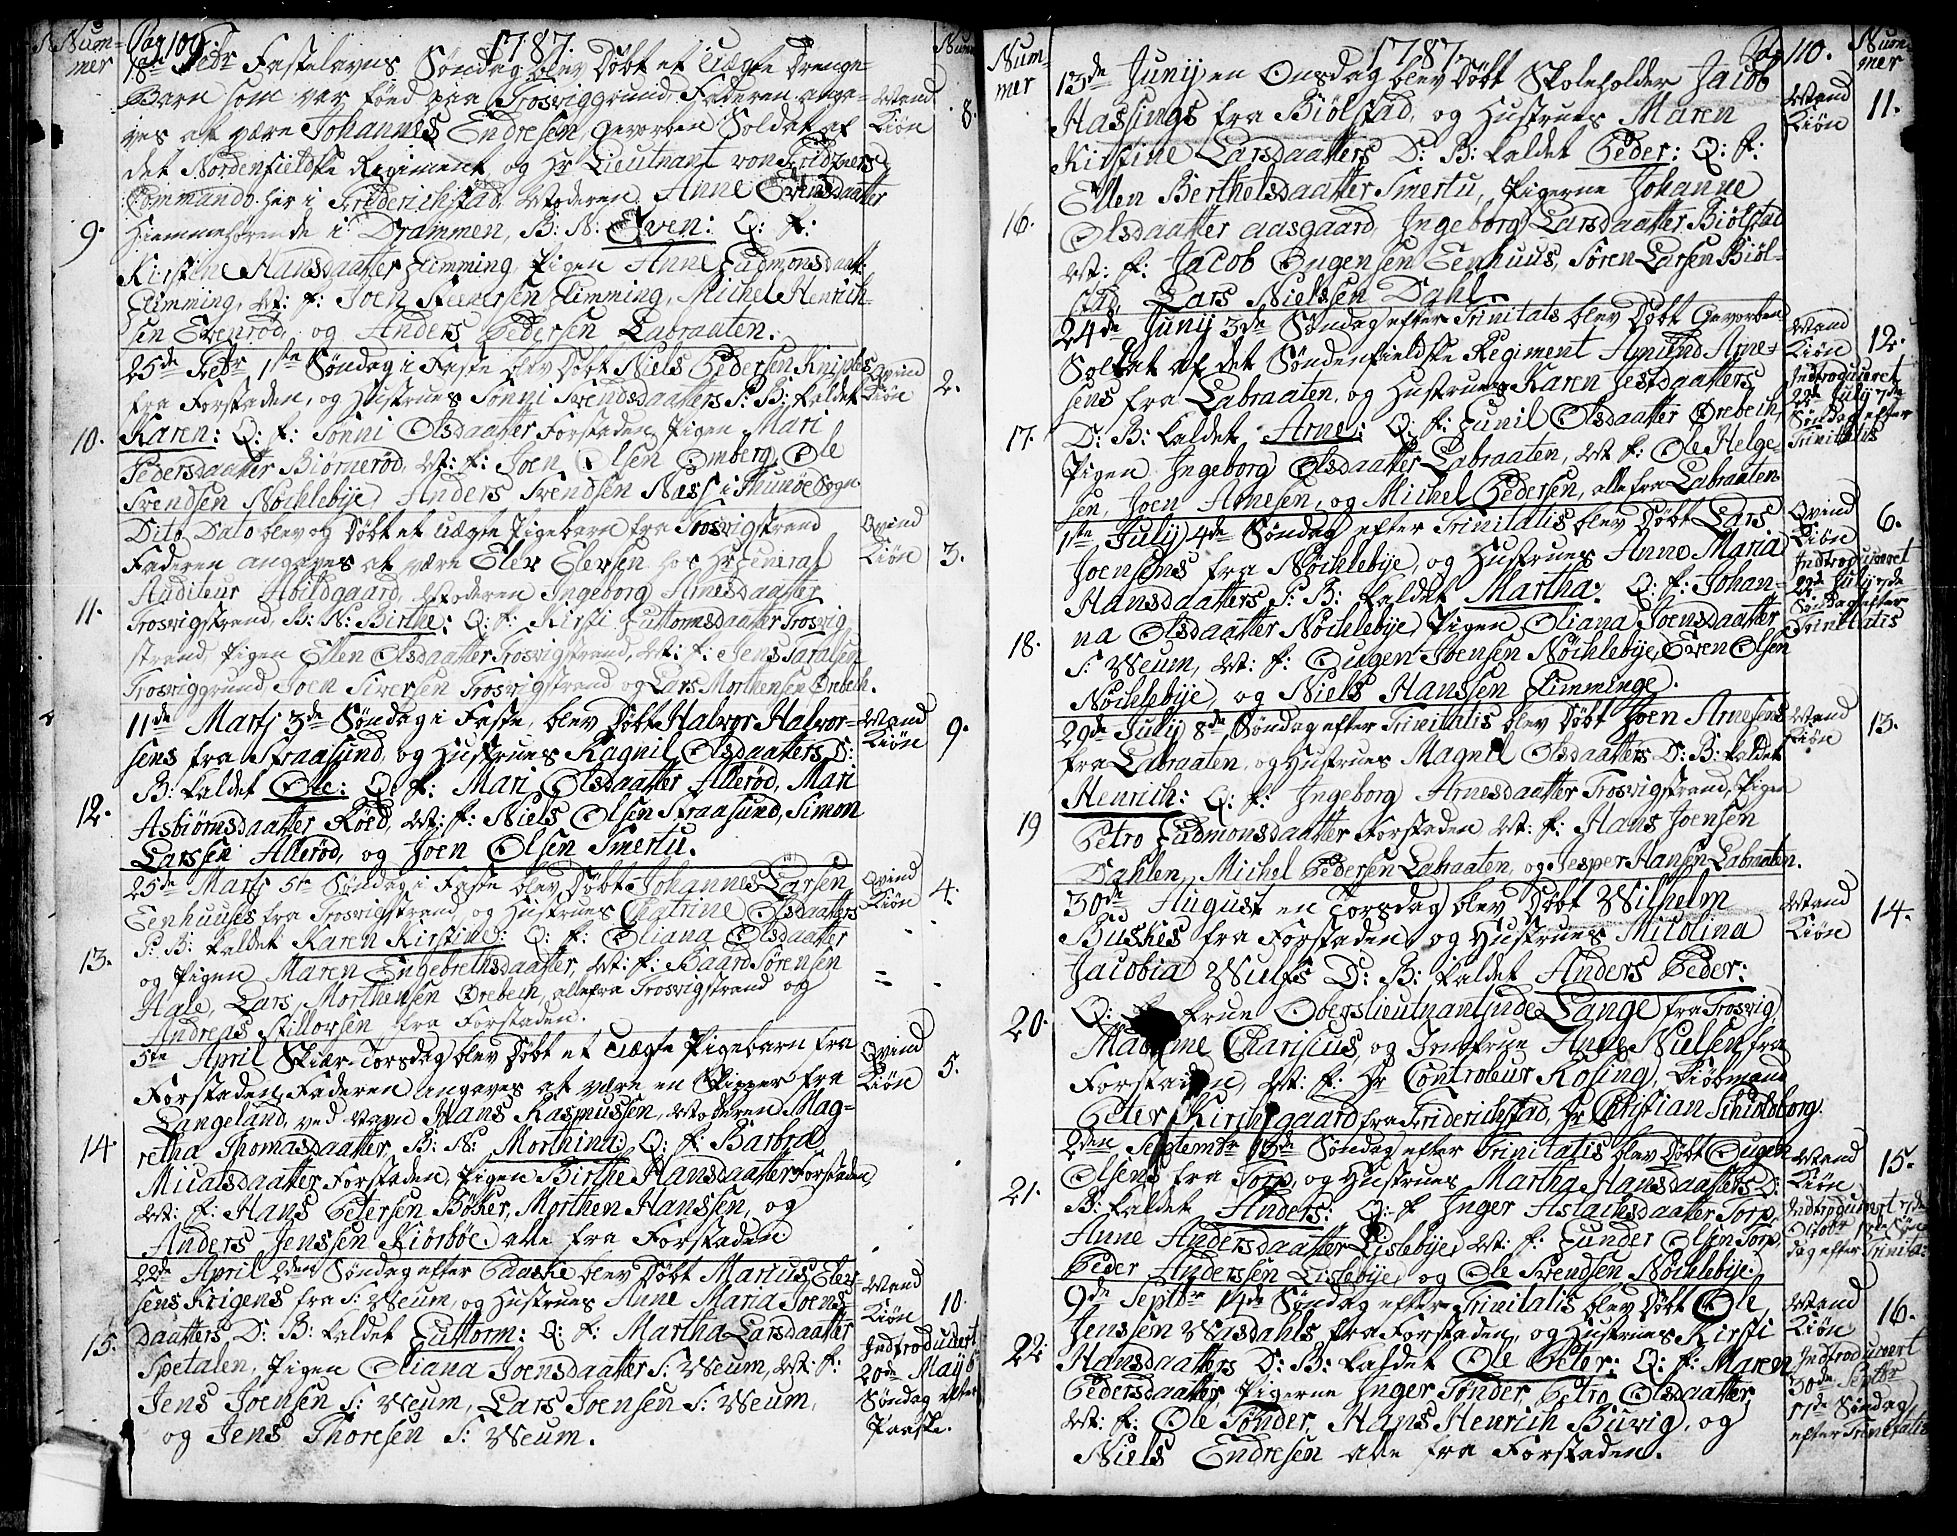 Num=
mer
Pag 109.
1787.
Num
18de Febr Fastelavns Søndag blev Døbt et uægte Drenge-
Barn som var fød paa Trosviggrund, Faderen ange=
ves at være Johannes Endresen gevorben Soldat af
det Nordenfieldske Regiment, og Hr Lieutnant von
Commando her i Friderichstad, Moderen Anne Evensdaatter
Hiemmehørende i Drammen, B: N: Even: Q: f:
Kirstine Hansdaatter Flimming, Pigen Anne Gudmonsdaatt:
Flimming, M: f: Joen Steensen Flimming, Michel Henrich-
sen Evenrød, og Anders Pedersen Labraaten.
9.
Mand
Kiøn
8.
25de Febr 1ste Søndag i Faste blev Døbt Niels Pedersen Kniples
fra Forstaden, og Hustrues Tonni Svendsdaatters P: B: kaldet
Karen: Q: f: Tonni Olsdaatter Forstaden, Pigen Mari
Pedersdaatter Biørnerød, M: f: Joen Olsen Omberg, Ole
Svendsen Nøchlebije, Anders Svendsen Næss i Thunøe Sogn
10.
Qvind
Kiøn
2.
Dito Dato blev og Døbt et uægte Pigebarn fra Trosvigstrand
Faderen angaves at være Elev Elevsen hos Hr General
Auditeur Abildgaard, Moderen Ingeborg Arnesdaatter
Trosvigstrand, B: N: Birthe: Q: f: Kirsti Guttormsdaatter Trosvig
strand, Pigen Ellen Olsdaatter Trosvigstrand, M: f: Jens Taralsen
Trosviggrund, Joen Siversen Trosvigstrand og Lars Morthensen Ørebech.
11.
Qvind
Kiøn
3.
11de Marts 3de Søndag i Faste, blev Døbt Halvor Halvor=
sens fra Straasund, og Hustrues Ragnil Olsdaatters D:
B: kaldet Ole: Q: f: Mari Olsdaatter Allerød, Mari
Asbiørnsdaatter Røed, M: f: Niels Olsen Straasund, Simon
Larssen Allerød, og Joen Olsen Smertu.
12.
Mand
Kiøn
9.
25de Marts 5te Søndag i Faste blev Døbt Johannes Larsen
Eenhuuses fra Trosvigstrand, og Hustrues Chatrine Olsdaatters
P: B: kaldet Karen Kirstine: Q: f: Oliana Olsdaatter
og Pigen Maren Engebrethsdaatter, M: f: Baard Sørensen
Aale, Lars Morthensen Ørebech, alle fra Trosvigstrand og
Andreas Stillovsen fra Forstaden.
13.
Qvind
Kiøn
4.
5te April Skiær-Torsdag blev Døbt et uægte Pigebarn fra
Forstaden, Faderen angaves at være en Skipper fra
Langeland, ved Navn Hans Rasmussen, Moderen Mag-
retha Thomasdaatter, B: N: Morthina: Q: f: Barbra
Micalsdaatter Forstaden, Pigen Birthe Hansdaatter Forstaden
M: f: Hans Petersen Bøker, Morthen Hanssen, og
Anders Jenssen Kiørboe alle fra Forstaden
14
Qvind
Kiøn
5.
22de April 2den Søndag efter Paaske blev Døbt Marius Elev-
sens Krigens fra S: Weum, og Hustrues Anne Maria Joens
Daatters D: B: kaldet Guttorm: Q: f: Martha Larsdaatter
Spetalen, Pigen Oliana Joensdaatter S: Weum, M: f:
Jens Joensen S: Weum, Lars Joensen S: Weum,
og Jens Thoresen S: Weum.
15.
Mand
Kiøn
10.
Indtroducert
20de Maij 6
Søndag efter
Paaske.
Num-
mer
1787.
Pag 110.
Num
mer
13de Junij en Onsdag blev Døbt Skoleholder Jacob
Hassings fra Biølstad, og Hustrues Maren
Kirstine Larsdaatters D: B: kaldet Peder: Q: f:
Ellen Berthelsdaatter Smertu, Pigerne Johanne
Olsdaatter Aasgaard, Ingeborg Larsdaatter Biølstad
M: f: Jacob Ougensen Eenhuus, Søren Larsen Biøl-
stad, Lars Nielssen Dahl.
16.
Mand
Kiøn
11.
24de Junij 3de Søndag efter Trinitatis blev Døbt Gevorben
Soldat af det Søndenfieldske Regiment Amund Arne=
sens fra Labraaten, og Hustrues Karen Jestdaatters
D: B: kaldet Arne: Q: f: Gunil Olsdaatter Ørebech,
Pigen Ingeborg Olsdaatter Labraaten, M: f: Ole Helge-
sen, Joen Arnesen, og Michel Pedersen, alle fra Labraaten
17.
Mand
Kiøn
12.
Indtroduceret
22de Julij 7de
Søndag efter
Trinitatis
1ste Julij 4de Søndag efter Trinitatis blev Døbt Lars
Joensens fra Nøchlebije, og Hustrues Anne Maria
Hansdaatters P: B: kaldet Martha: Q: f: Johan-
na Olsdaatter Nøchlebije, Pigen Oliana Joensdaatter
S: Weum, M: f: Ougen Joensen Nøchlebije, Even Olsen
Nøchlebije, og Niels Hanssen Flimminge.
18.
Qvind
Kiøn
6.
Indtroduceret
22de Julij 7de
Søndag efter
Trinitatis
29de Julij 8de Søndag efter Trinitatis blev Døbt Joen Arnesens
fra Labraaten, og Hustrues Magnil Olsdaatters D: B: kaldet
Henrich: Q: f: Ingeborg Arnesdaatter Trosvigstrand, Pigen
Petro Gudmonsdaatter Forstaden M: f: Hans Joensen
Dahlen, Michel Pedersen Labraaten, og Jesper Hansen Labraaten.
19
Mand
Kiøn
13.
30de August en Torsdag blev Døbt Wilhelm
Buskes fra Forstaden, og Hustrues Micolina
Jacobia Wulfs D: B: kaldet Anders Peder:
Q: f: Frue Oberstlieutnantjnde Lange fra Trosvig
Madame Charisius, og Jomfrue Anne Nielsen fra
Forstaden, M: f: Hr Controleur Rosing, Kiøbmand
Peter Kirchgaard fra Friderichstad, Hr Christian Schioldborg.
20.
Mand
Kiøn
14.
2den Septembr 13de Søndag efter Trinitatis blev Døbt Ougen
Olsens fra Torp, og Hustrues Martha Hansdaatters D:
B: kaldet Anders: Q: f Inger Aslachsdaatter Torp,
Anne Andersdaatter Lislebije, M: f: Gunder Olsen Torp,
Peder Anderssen Lislebije, og Ole Svendsen Nøchlebije.
21.
Mand
Kiøn
15.
Indtroducert 7de
Octobr 18de Søn
dag efter Trinita=
9de Septbr 14de Søndag efter Trinitatis blev Døbt Ole
Jenssen Wasdahls fra Forstaden, og Hustrues Kirsti
Hansdaatters D: B: kaldet Ole Peter: Q: f: Maren
Pedersdaatter, Pigerne Inger Tønder, Petro Olsdaatter,
M: f: Ole Tønder, Hans Henrich Buvig, og
Niels Endresen alle fra Forstaden.
22
Mand
Kiøn
16.
Indtroducert
30de Septbr
17de Søndag
efter Trinitatis